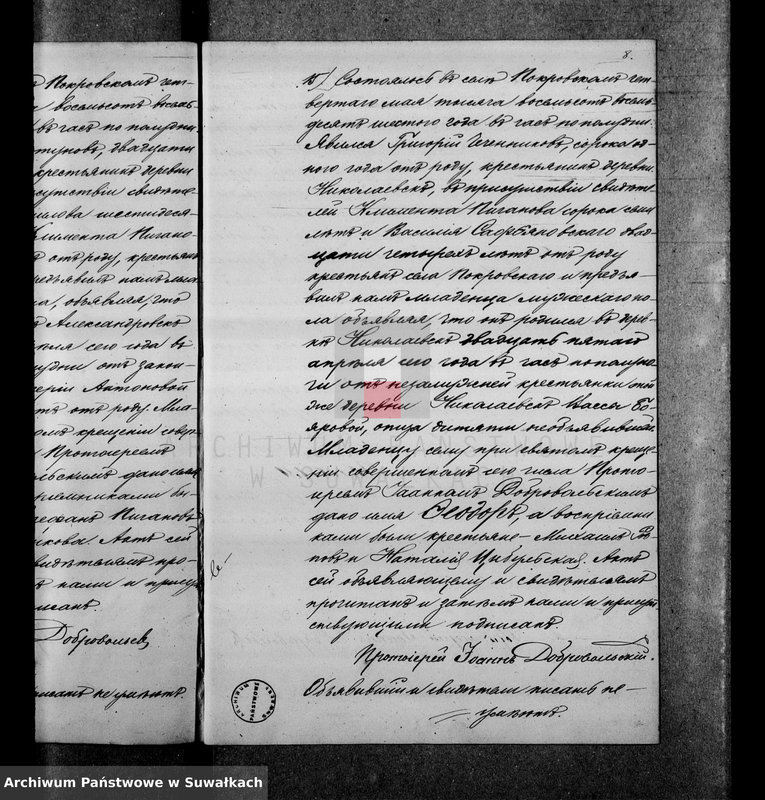 8.
Покровскомъ чет-
восемьсотъ восемь
въ часъ по полудни
двадцати
крестьянинъ деревни
сутствіи свидѣте-
шестидеся-
Климента Пигано-
отъ роду, крестьян
объявляя, что
Александровскъ
сего года въ
отъ закон-
Антоновой
отъ роду. Мла-
крещеніи совер-
Протоіереемъ
дано имя
Пигановъ
Актъ сей
свидѣтелямъ про-
нами и присут
Добровольск
писать не умѣютъ.
15/ Состоялось въ селѣ Покровскомъ чет-
вертаго мая тысяча восемьсотъ восемь-
десятъ шестого года въ часъ по полудни.
Явился Григорій Чечениковъ, сорока од-
ного года отъ роду, крестьянинъ деревни
Николаевскъ, въ присутствіи свидѣте-
лей Климента Пиганова сорока семи
лѣтъ и Василія Скорбяновского двад-
цати четырехъ лѣтъ отъ роду
крестьянъ села Покровскаго и предъя-
вилъ намъ младенца мужескаго по-
ла объявляя, что онъ родился въ дерев-
нѣ Николаевскъ двадцать пятаго
апрѣля сего года въ часъ пополуно-
чи отъ незамужней крестьянки той
же деревни Николаевскъ Вассы Бо-
яковой, отца дитяти необъявившей.
Младенцу сему при святомъ креще-
ніи совершенномъ сего числа Прото-
іереемъ Іоанномъ Добровольскимъ
дано имя Ѳеодоръ, а воспріемни-
ками были крестьяне - Михаилъ
и Наталія Цыбульская. Актъ
сей объявляющему и свидѣтелямъ
прочитанъ и затѣмъ нами и присут
ствующими подписанъ.
Протоіерей Іоаннъ Добровольскій.
Объявившій и свидѣтели писать не -
умѣютъ.
ARCHIWUM PAŃSTWOWE
W SUWAŁKACH
ARCHIWUM PAŃSTWOWE
Archiwum Państwowe w Suwałkach